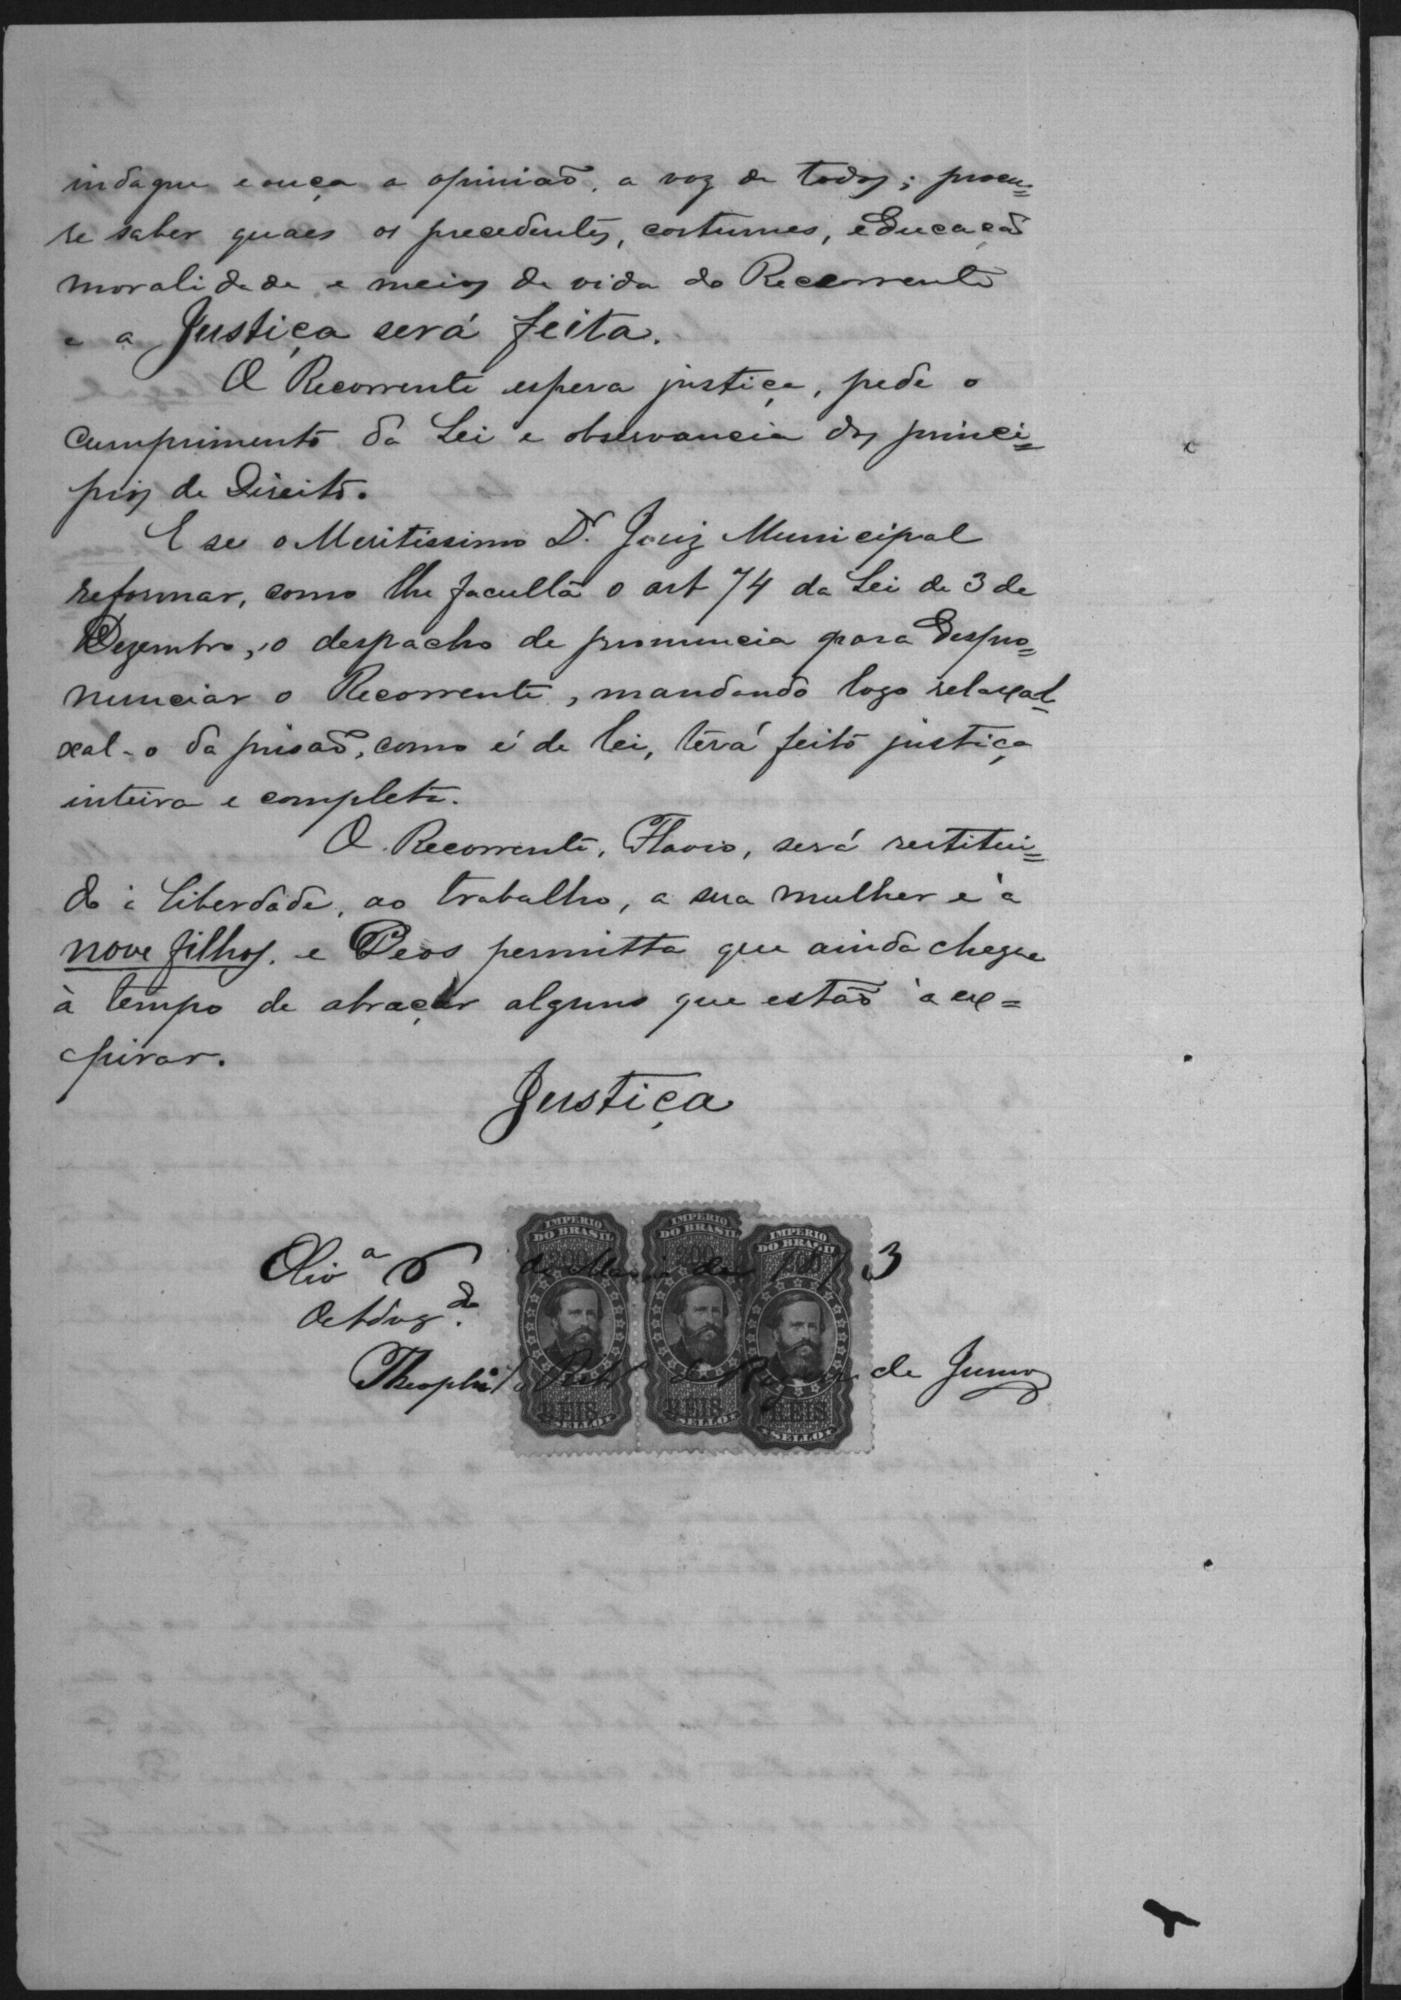 indague e ouça a opinião, a voz de todos; procu=
re saber quaes os precedentes, costumes, educação
moralidade e meios de vida do Recorrente
e a Justiça será feita.
O Recorrente espera justiça, pede o
cumprimento da Lei e observancia dos princi=
pios de Direito.
E se o Meritissimo Dr. Juiz Municipal
reformar, como lhe faculta o art 74 da Lei de 3 de
Dezembro, o despacho de pronuncia para despro=
nunciar o Recorrente, mandando logo relaxal=
xal-o da prisão, como é de lei, terá feito justiça
inteira e completa.
O Recorrente, Flavio, será restitui=
do á liberdade, ao trabalho, a sua mulher e á
nove filhos, e Deos permitta que ainda chegue
à tempo de abraçar alguns que estão á ex=
pirar.
Justiça
IMPERIO DO BRASIL
IMPERIO DO BRASIL
IMPERIO DO BRASIL
200
200
Oliva 6 de 1873
O Advogdo.
Theophilo de Junior
REIS
REIS
REIS
SELLO
SELLO
SELLO